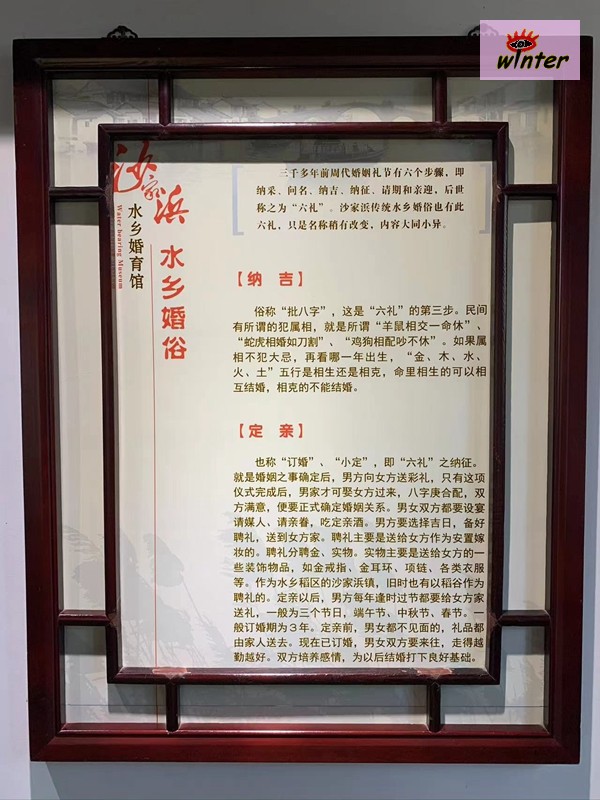 winter
沙家浜
水乡婚育馆
Water bearing Museum
水乡婚俗
三千多年前周代婚姻礼节有六个步骤，即
纳采、问名、纳吉、纳征、请期和亲迎，后世
称之为“六礼”。沙家浜传统水乡婚俗也有此
六礼，只是名称稍有改变，内容大同小异。
【纳 吉】
俗称“批八字”，这是“六礼”的第三步。民间
有所谓的犯属相，就是所谓“羊鼠相交一命休”、
“蛇虎相婚如刀割”、“鸡狗相配吵不休”。如果属
相不犯大忌，再看哪一年出生，“金、木、水、
火、土”五行是相生还是相克，命里相生的可以相
互结婚，相克的不能结婚。
【定 亲】
也称“订婚”、“小定”，即“六礼”之纳征。
就是婚姻之事确定后，男方向女方送彩礼，只有这项
仪式完成后，男家才可娶女方过来，八字庚合配，双
方满意，便要正式确定婚姻关系。男女双方都要设宴
请媒人、请亲眷，吃定亲酒。男方要选择吉日，备好
聘礼，送到女方家。聘礼主要是送给女方作为安置嫁
妆的。聘礼分聘金、实物。实物主要是送给女方的一
些装饰物品，如金戒指、金耳环、项链、各类衣服
等。作为水乡稻区的沙家浜镇，旧时也有以稻谷作为
聘礼的。定亲以后，男方每年逢时过节都要给女方家
送礼，一般为三个节日，端午节、中秋节、春节。一
般订婚期为３年。定亲前，男女都不见面的，礼品都
由家人送去。现在已订婚，男女双方要来往，走得越
勤越好。双方培养感情，为以后结婚打下良好基础。